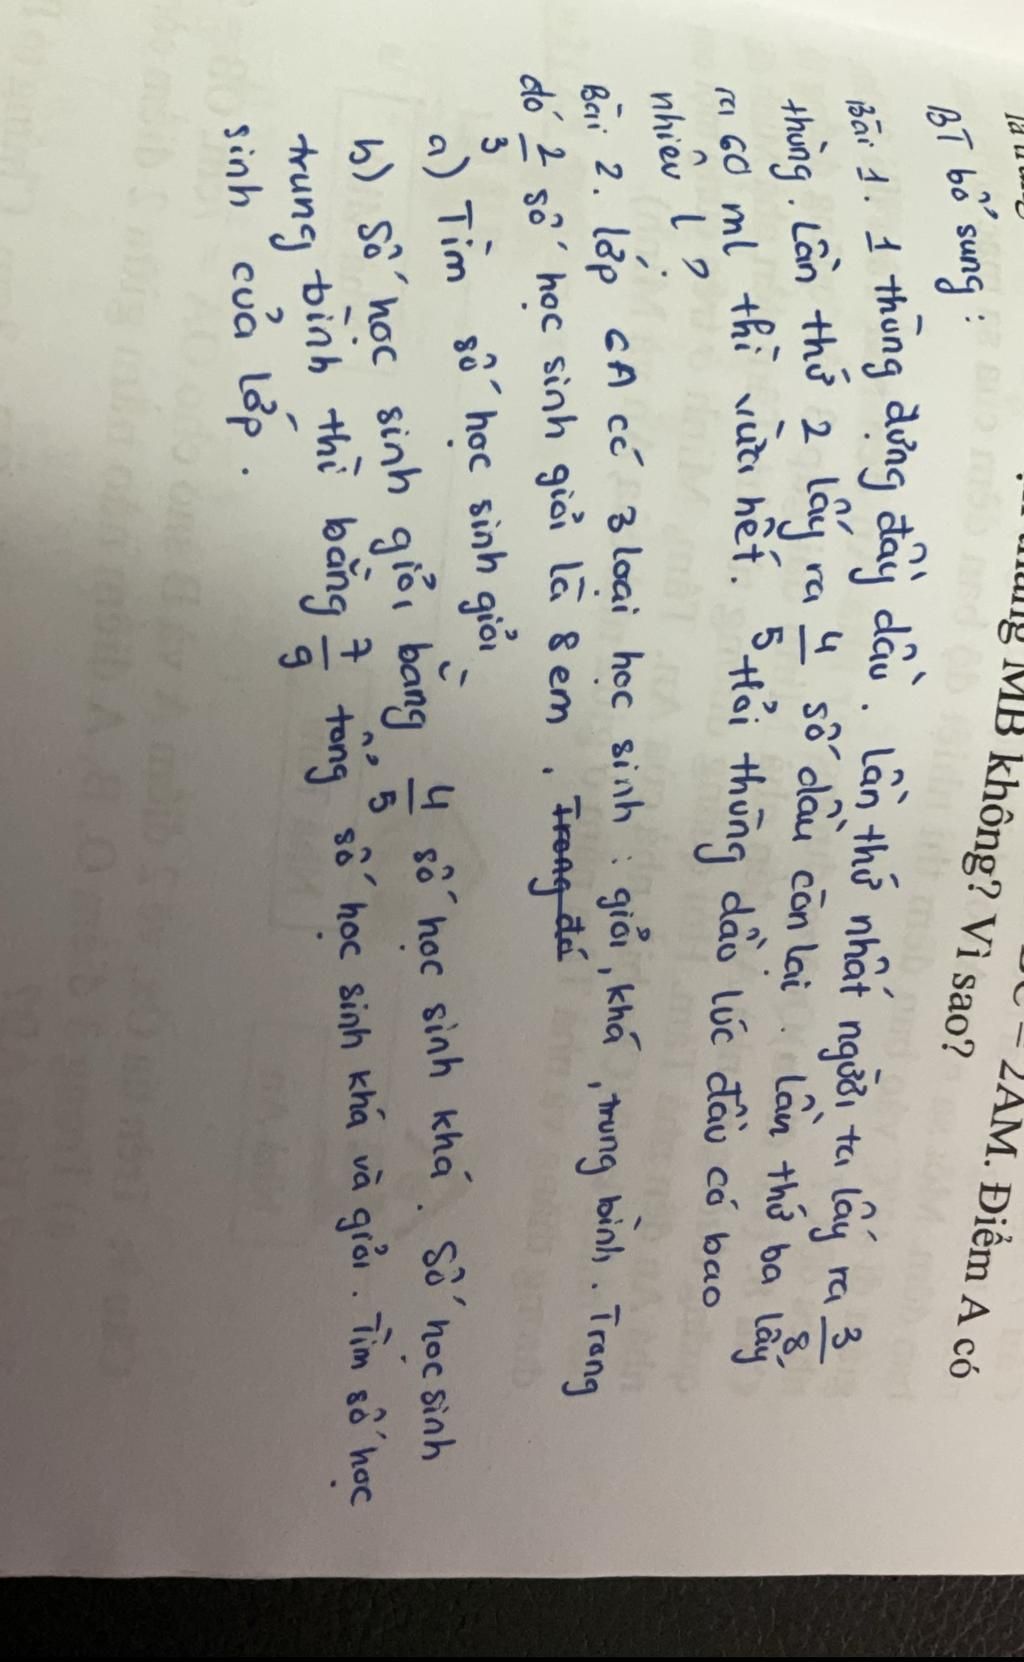 MB không? Vì sao?
= 2AM. Điểm A có
BT bổ sung :
Bài 1. 1 thùng đựng đầy dầu. Lần thứ nhất người ta lấy ra 3/8
thùng. Lần thứ 2 lấy ra 4/5 số dầu còn lại. Lần thứ ba lấy
ra 60 ml thì vừa hết. Hỏi thùng dầu lúc đầu có bao
nhiêu l ?
Bài 2. lớp 6A có 3 loại học sinh : giỏi, khá, trung bình. Trong
đó 2/3 số học sinh giỏi là 8 em. Trong đó
a) Tìm số học sinh giỏi
b) Số học sinh giỏi bằng 4/5 số học sinh khá. Số học sinh
trung bình thì bằng 7/9 tổng số học sinh khá và giỏi. Tìm số học
sinh của lớp.